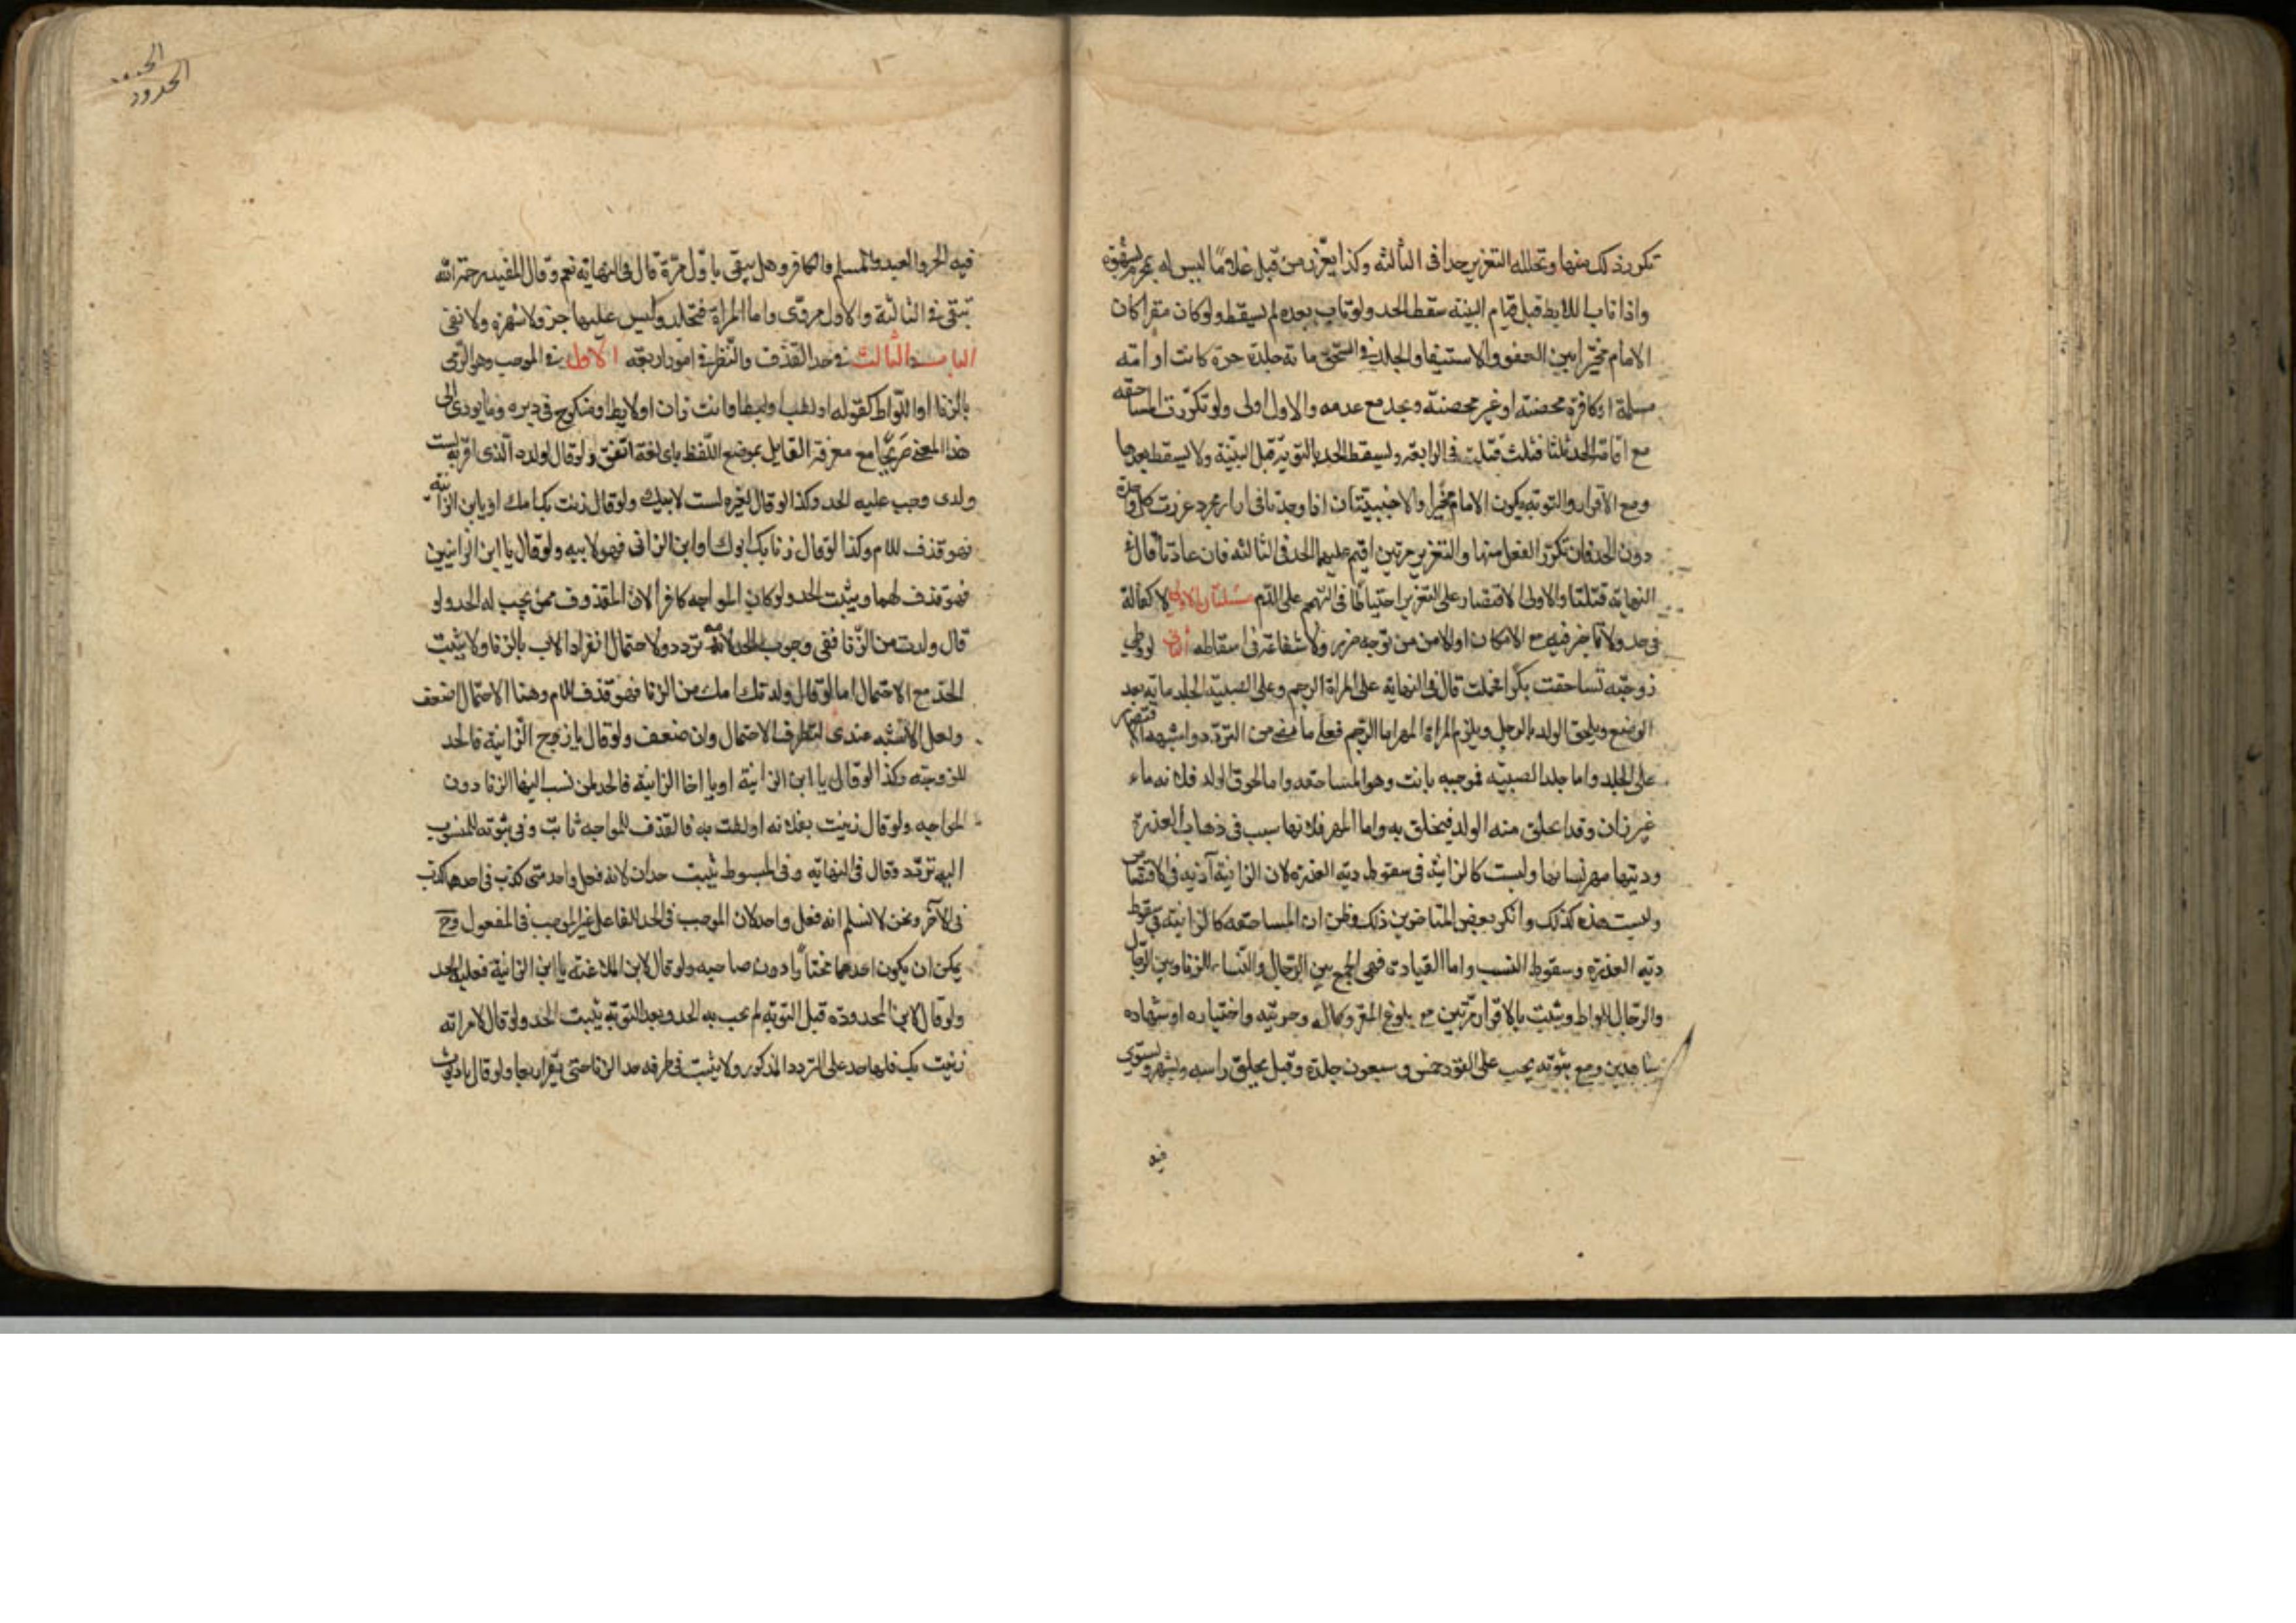 تكرر ذلك منهما وتخلله التعزير حدا فى الثالثه وكذا يعزر من قبل غلاما ليس له بمحرم بشهوة
واذا تاب اللايط قبل قيام البينه سقط الحد ولو تاب بعده لم يسقط ولو كان مقرا كان
الامام مخيرا بين العفو والاستيفا والجلد فى السحق مائة جلدة حرة كانت او امته
مسلمة او كافرة محصنته او غير محصنته وبحد مع عدمه والاول اولى ولو تكررت المساحقه
مع اقامة الحد ثلثا قتلت فى الرابعة ويسقط الحد بالتوبة قبل البينة ولا يسقط بعدها
ومع الاقرار والتوبه يكون الامام مخيرا والاجنبيتان اذا وجدتا فى ازار مجرد عزرت كل واحدة
دون الحد فان تكرر الفعل منها والتعزير مرتين اقيم عليهما الحد فى الثالثه فان عادتا قال فى
النهايه قتلتا والاولى الاقتصار على التعزير احتياطا فى التهجم على الدم مسئلتان الاولى لا كفالة
فى حد ولا تاخر فيه مع الامكان او الامن من توجه ضرر ولا شفاعة فى اسقاطه الثانى لو وطى
زوجته فساحقت بكرا فحملت قال فى النهاية على المراة الرجم وعلى الصبية الجلد ماية بعد
الوضع ويلحق الولد بالرجل ويلزم المراة المهر اما الرجم فعلى ما مضى من التردد واشبهه الاقتصار
على الجلد واما جلد الصبيه فموجبه ثابت وهو المساحقه واما لحوق الولد فلانه ماء
غير زان وقد انخلق منه الولد فيلحق به واما المهر فلانها سبب فى ذهاب العذرة
وديتها مهر نسائها وليست كالزانية فى سقوط دية العذرة لان الزانية آذنه فى الاقتضاض
وليست هذه كذلك وانكر بعض المتاخرين ذلك وظن ان المساحقه كالزانية فى سقوط
دية العذرة وسقوط النسب واما القيادة فهى الجمع بين الرجال والنساء للزنا وبين الرجال
والرجال للواط ويثبت بالاقرار مرتين مع بلوغ المقر وكماله وحريته واختياره او شهاده
شاهدين ومع ثبوته يجب على القواد خمس وسبعون جلدة وقيل يحلق راسه ويشهر ويستوى
فيه
الحدود
فيه الحر والعبد والمسلم والكافر وهل ينفى باول مرة قال فى النهاية نعم وقال المفيد رحمه الله
ينفى فى الثانية والاول مروى واما المراة فتجلد وليس عليها جز ولا شهرة ولا نفى
الباب الثالث فى حد القذف والنظر فى امور اربعه الاول فى الموجب وهو الرمى
بالزنا او اللواط كقوله زنيت او لطت او ليط بك او انت زان او لايط او منكوح فى دبره وما يودى الى
هذا المعنى صريحا مع معرفة القايل بموضع اللفظ باى لغة اتفق ولو قال لولده الذى اقر به لست
ولدى وجب عليه الحد وكذا لو قال لغيره لست لابيك ولو قال زنت بك امك او يا بن الزانية
فهو قذف للام وكذا لو قال زنا بك ابوك او ابن الزانى فهو لابيه ولو قال يا ابن الزانيين
فهو قذف لهما ويثبت الحد ولو كان المواجه كافرا لان المقذوف ممن يجب له الحد ولو
قال ولدت من الزنا ففى وجوب الحد لامه تردد ولاحتمال انفراد الاب بالزنا ولا يثبت
الحد مع الاحتمال اما لو قال ولدتك امك من الزنا فهو قذف للام وهنا الاحتمال اضعف
ولعل الاشبه عندى لتطرف الاحتمال وان ضعف ولو قال يا زوج الزانية فالحد
للزوجته وكذا لو قال يا ابن الزانية او يا اخا الزانية فالحد لمن نسب اليها الزنا دون
المواجه ولو قال زنيت بفلانه او لطت به فالقذف للمواجه ثابت وفى ثبوته للمنسوب
اليه تردد وقال فى النهاية وفى المبسوط يثبت حدان لانه فعل واحد متى كذب فى احدهما كذب
فى الآخر ونحن لا نسلم انه فعل واحد لان الموجب فى الحد الفاعل غير الموجب فى المفعول وح
يمكن ان يكون احدهما مختارا دون صاحبه ولو قال لابن الملاعنة يا ابن الزانية فعليه الحد
ولو قال لابن المحدودة قبل التوبة لم يجب به الحد وبعد التوبة يثبت الحد ولو قال لامراته
زنيت بك فلها حد على التردد المذكور ولا يثبت فى طرفه حد الزنا حتى يقر اربعا ولو قال يا ديوث